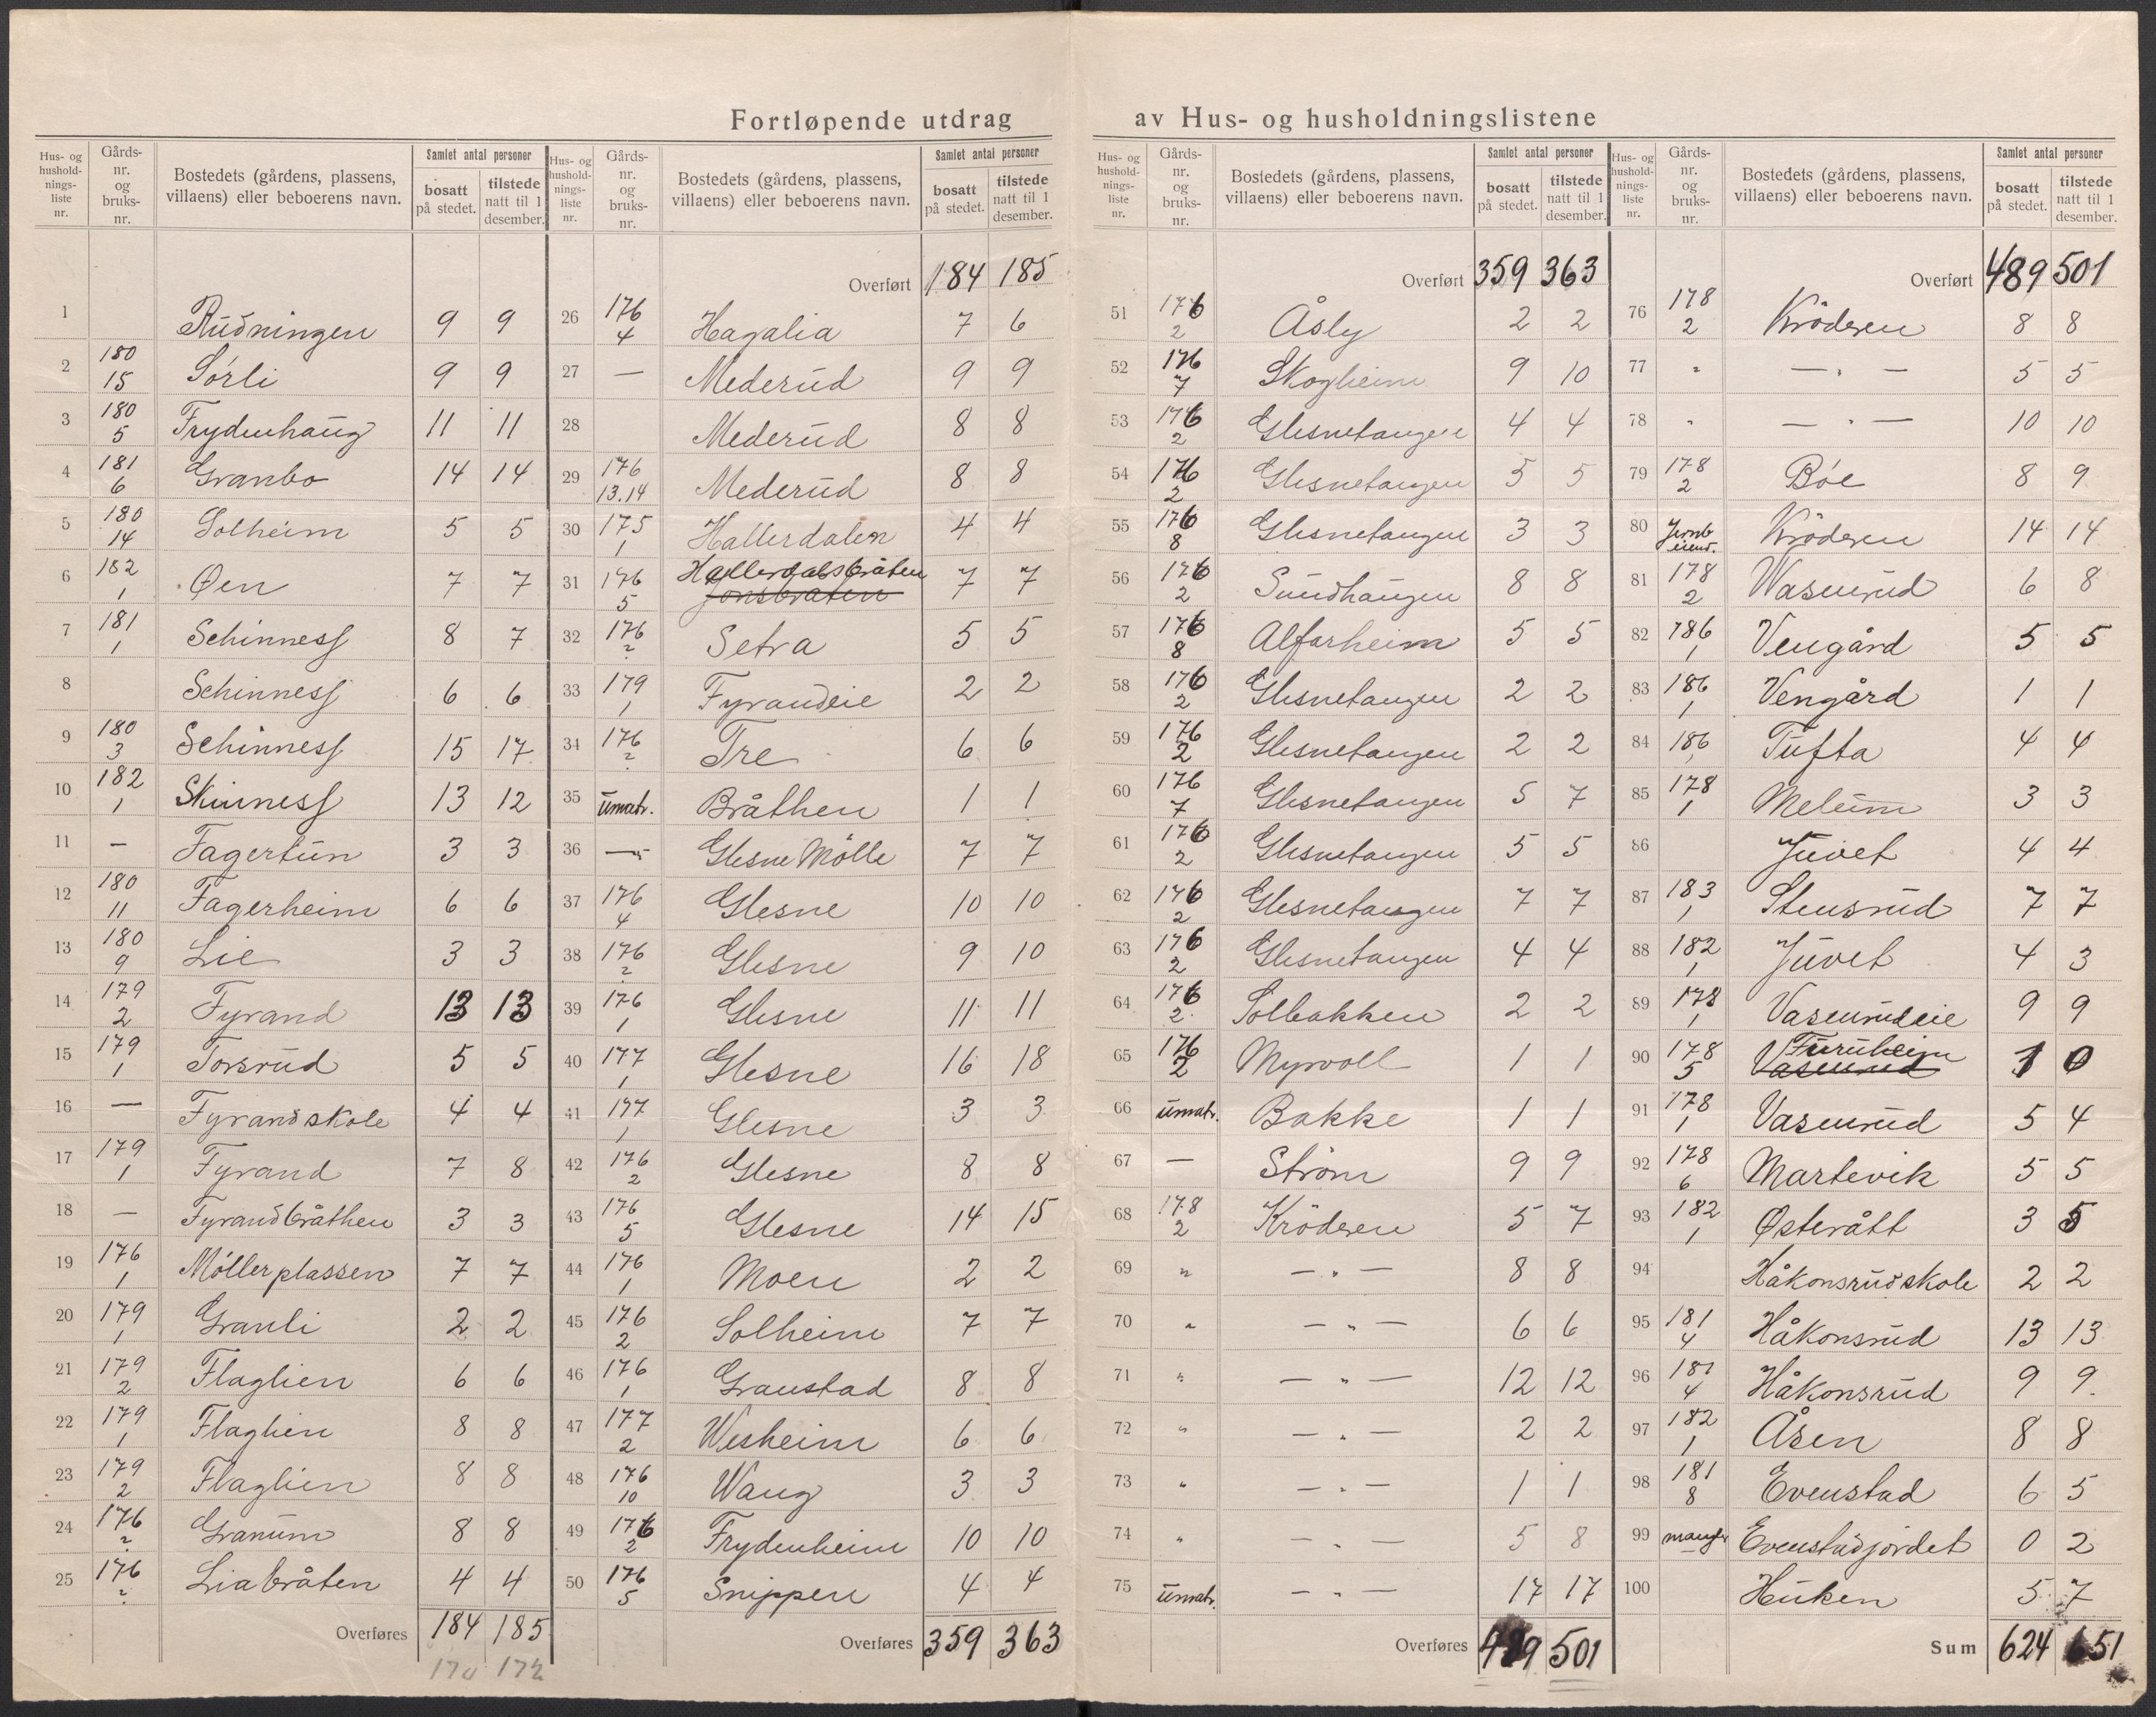 Fortløpende utdrag av Hus- og husholdningslistene
Hus- og husholdnings-liste nr. | Gårds-nr. og bruks-nr. | Bostedets (gårdens, plassens, villaens) eller beboerens navn. | Samlet antal personer bosatt på stedet. | tilstede natt til 1 desember.
1 Rudningen 9 9
2 180/15 Sørli 9 9
3 180/5 Frydenhaug 11 11
4 181/6 Granbo 14 14
5 180/14 Solheim 5 5
6 182/1 Øen 7 7
7 181/1 Schinness 8 7
8 Schinness 6 6
9 180/3 Schinness 15 17
10 182/1 Skinness 13 12
11 — Fagertun 3 3
12 180/11 Fagerheim 6 6
13 180/9 Lie 3 3
14 179/2 Fyrand 13 13
15 179/1 Torsrud 5 5
16 — Fyrandskole 4 4
17 179/1 Fyrand 7 8
18 — Fyrandbråthen 3 3
19 176/1 Møllerplassen 7 7
20 179/1 Granli 2 2
21 179/2 Flaglien 6 6
22 179/1 Flaglien 8 8
23 179/2 Flaglien 8 8
24 176/? Granum 8 8
25 176/? Liabråten 4 4
Overføres 184 185
170 172
Hus- og husholdnings-liste nr. | Gårds-nr. og bruks-nr. | Bostedets (gårdens, plassens, villaens) eller beboerens navn. | Samlet antal personer bosatt på stedet. | tilstede natt til 1 desember.
Overført 184 185
26 176/4 Hagalia 7 6
27 — Mederud 9 9
28 Mederud 8 8
29 176/13.14 Mederud 8 8
30 175/1 Hallerdalen 4 4
31 176/5 Hallerdalsbråten Jonsbråten 7 7
32 176/? Setra 5 5
33 179/1 Fyrandeie 2 2
34 176/? Tre 6 6
35 umatr. Bråthen 1 1
36 —"— Glesne Mölle 7 7
37 176/4 Glesne 10 10
38 176/? Glesne 9 10
39 176/1 Glesne 11 11
40 177/1 Glesne 16 18
41 177/1 Glesne 3 3
42 176/2 Glesne 8 8
43 176/5 Glesne 14 15
44 176/1 Moen 2 2
45 176/2 Solheim 7 7
46 176/1 Granstad 8 8
47 177/2 Wesheim 6 6
48 176/10 Waug 3 3
49 176/2 Frydenheim 10 10
50 176/5 Snippen 4 4
Overføres 359 363
Hus- og husholdnings-liste nr. | Gårds-nr. og bruks-nr. | Bostedets (gårdens, plassens, villaens) eller beboerens navn. | Samlet antal personer bosatt på stedet. | tilstede natt til 1 desember.
Overført 359 363
51 176/2 Åsly 2 2
52 176/7 Skogheim 9 10
53 176/2 Glesnetangen 4 4
54 176/2 Glesnetangen 5 5
55 176/8 Glesnetangen 3 3
56 176/2 Sundhaugen 8 8
57 176/8 Alfarheim 5 5
58 176/2 Glesnetangen 2 2
59 176/2 Glesnetangen 2 2
60 176/7 Glesnetangen 5 7
61 176/2 Glesnetangen 5 5
62 176/2 Glesnetangen 7 7
63 176/2 Glesnetangen 4 4
64 176/2 Solbakken 2 2
65 176/2 Myrvoll 1 1
66 umatr. Bakke 1 1
67 — Ström 9 9
68 178/2 Kröderen 5 7
69 " — " — 8 8
70 " — " — 6 6
71 " — " — 12 12
72 " — " — 2 2
73 " — " — 1 1
74 " — " — 5 8
75 umatr. — " — 17 17
Overføres 489 501
Hus- og husholdnings-liste nr. | Gårds-nr. og bruks-nr. | Bostedets (gårdens, plassens, villaens) eller beboerens navn. | Samlet antal personer bosatt på stedet. | tilstede natt til 1 desember.
Overført 489 501
76 178/2 Kröderen 8 8
77 " — " — 5 5
78 " — " — 10 10
79 178/2 Bøe 8 9
80 Jernb. eiend. Kröderen 14 14
81 178/2 Wasenrud 6 8
82 186/1 Vengård 5 5
83 186/1 Vengård 1 1
84 186/1 Tufta 4 4
85 178/1 Melum 3 3
86 Juvet 4 4
87 183/1 Stensrud 7 7
88 182/1 Juvet 4 3
89 178/1 Vasenrudeie 9 9
90 178/5 Furuheim Vasenrud 1 0
91 178/1 Vasenrud 5 4
92 178/6 Martevik 5 5
93 182/1 Østerått 3 5
94 Håkonsrudskole 2 2
95 181/4 Håkonsrud 13 13
96 181/4 Håkonsrud 9 9
97 182/1 Åsen 8 8
98 181/8 Evenstad 6 5
99 mangler Evenstadjordet 0 2
100 Huken 5 7
Sum 624 651